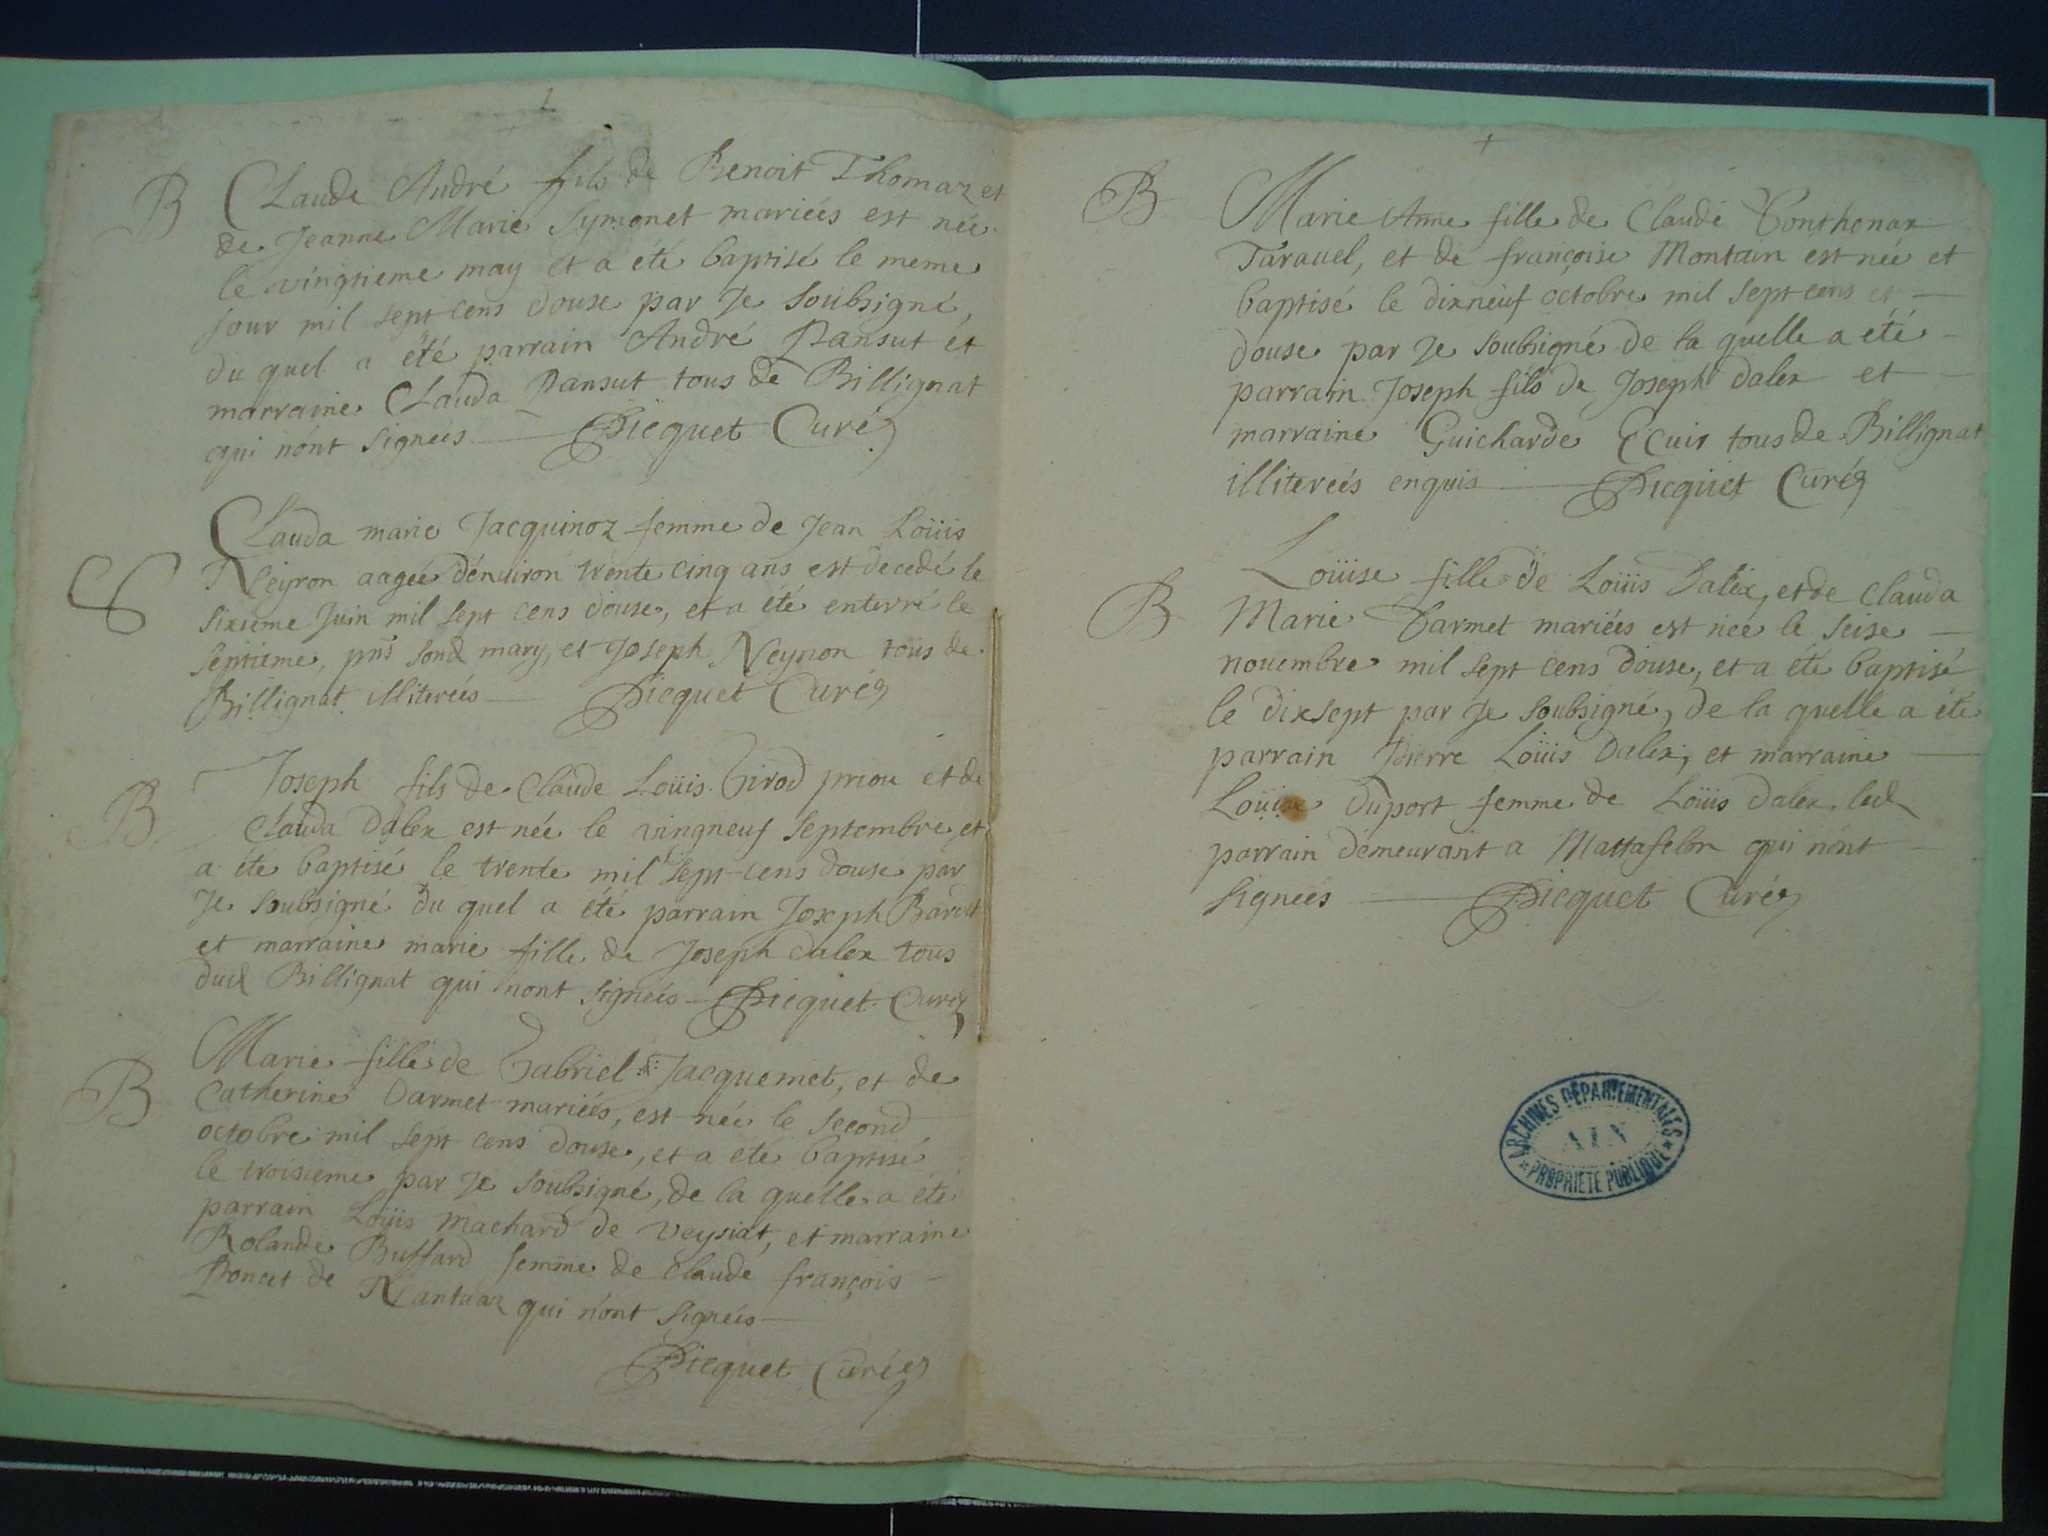 B Claude André fils de Benoit Thomaz et
de Jeanne Marie Symonet mariées est née
le vingtieme may et a été baptisé le meme
jour mil sept cens douse par Je soubsigné,
du quel a été parrain André Pansut et
marraine Clauda Pansut tous de Billignat
qui nont signées Picquet Curé
S Clauda marie Jacquinoz femme de Jean Loüis
Neyron aageé d'enuiron trente cinq ans est decedé le
sixieme Juin mil sept cens douse, et a été enterré le
septieme, pns sond mary, et Joseph Neyron tous de
Billignat illitereés Picquet Curé
B Joseph fils de Claude Loüis Girod priou et de
Clauda Dalex est née le vingneuf septembre et
a été baptisé le trente mil sept cens douse par
Je soubsigné du quel a été parrain Joseph
et marraine marie fille de Joseph dalex tous
dud Billignat qui nont signeés Picquet Curé
B Marie fille de Gabriel Jacquemet, et de
Catherine Darmet mariées, est née le second
octobre mil sept cens douse, et a été baptisé
le troisieme par Je soubsigné, de la quelle a été
parrain Loüis Machard de Veysiat, et marraine
Rolande Buffard femme de Claude françois
Poncet de Nantuaz qui n'ont signeés
Picquet Curé
B Marie Anne fille de Claude Tonthenax
Tarauel, et de françoise Montain est née et
baptisé le dixneuf octobre mil sept cens et
douse par Je soubsigné de la quelle a été
parrain Joseph fils de Joseph dalex et
marraine Guicharde Ecuir tous de Billignat
illitereés enquis Picquet Curé
B Loüise fille de Loüis Dalex, et de Clauda
Marie Darmet mariées est née le seise
nouembre mil sept cens douse, et a été baptisé
le dixsept par Je soubsigné, de la quelle a été
parrain Pierre Loüis Dalex, et marraine
Loüise Duport femme de Loüis Dalex led
parrain demeurant a Mattafelon qui nont
signeés Picquet Curé
ARCHIVES DÉPARTEMENTALES
AIN
PROPRIÉTÉ PUBLIQUE